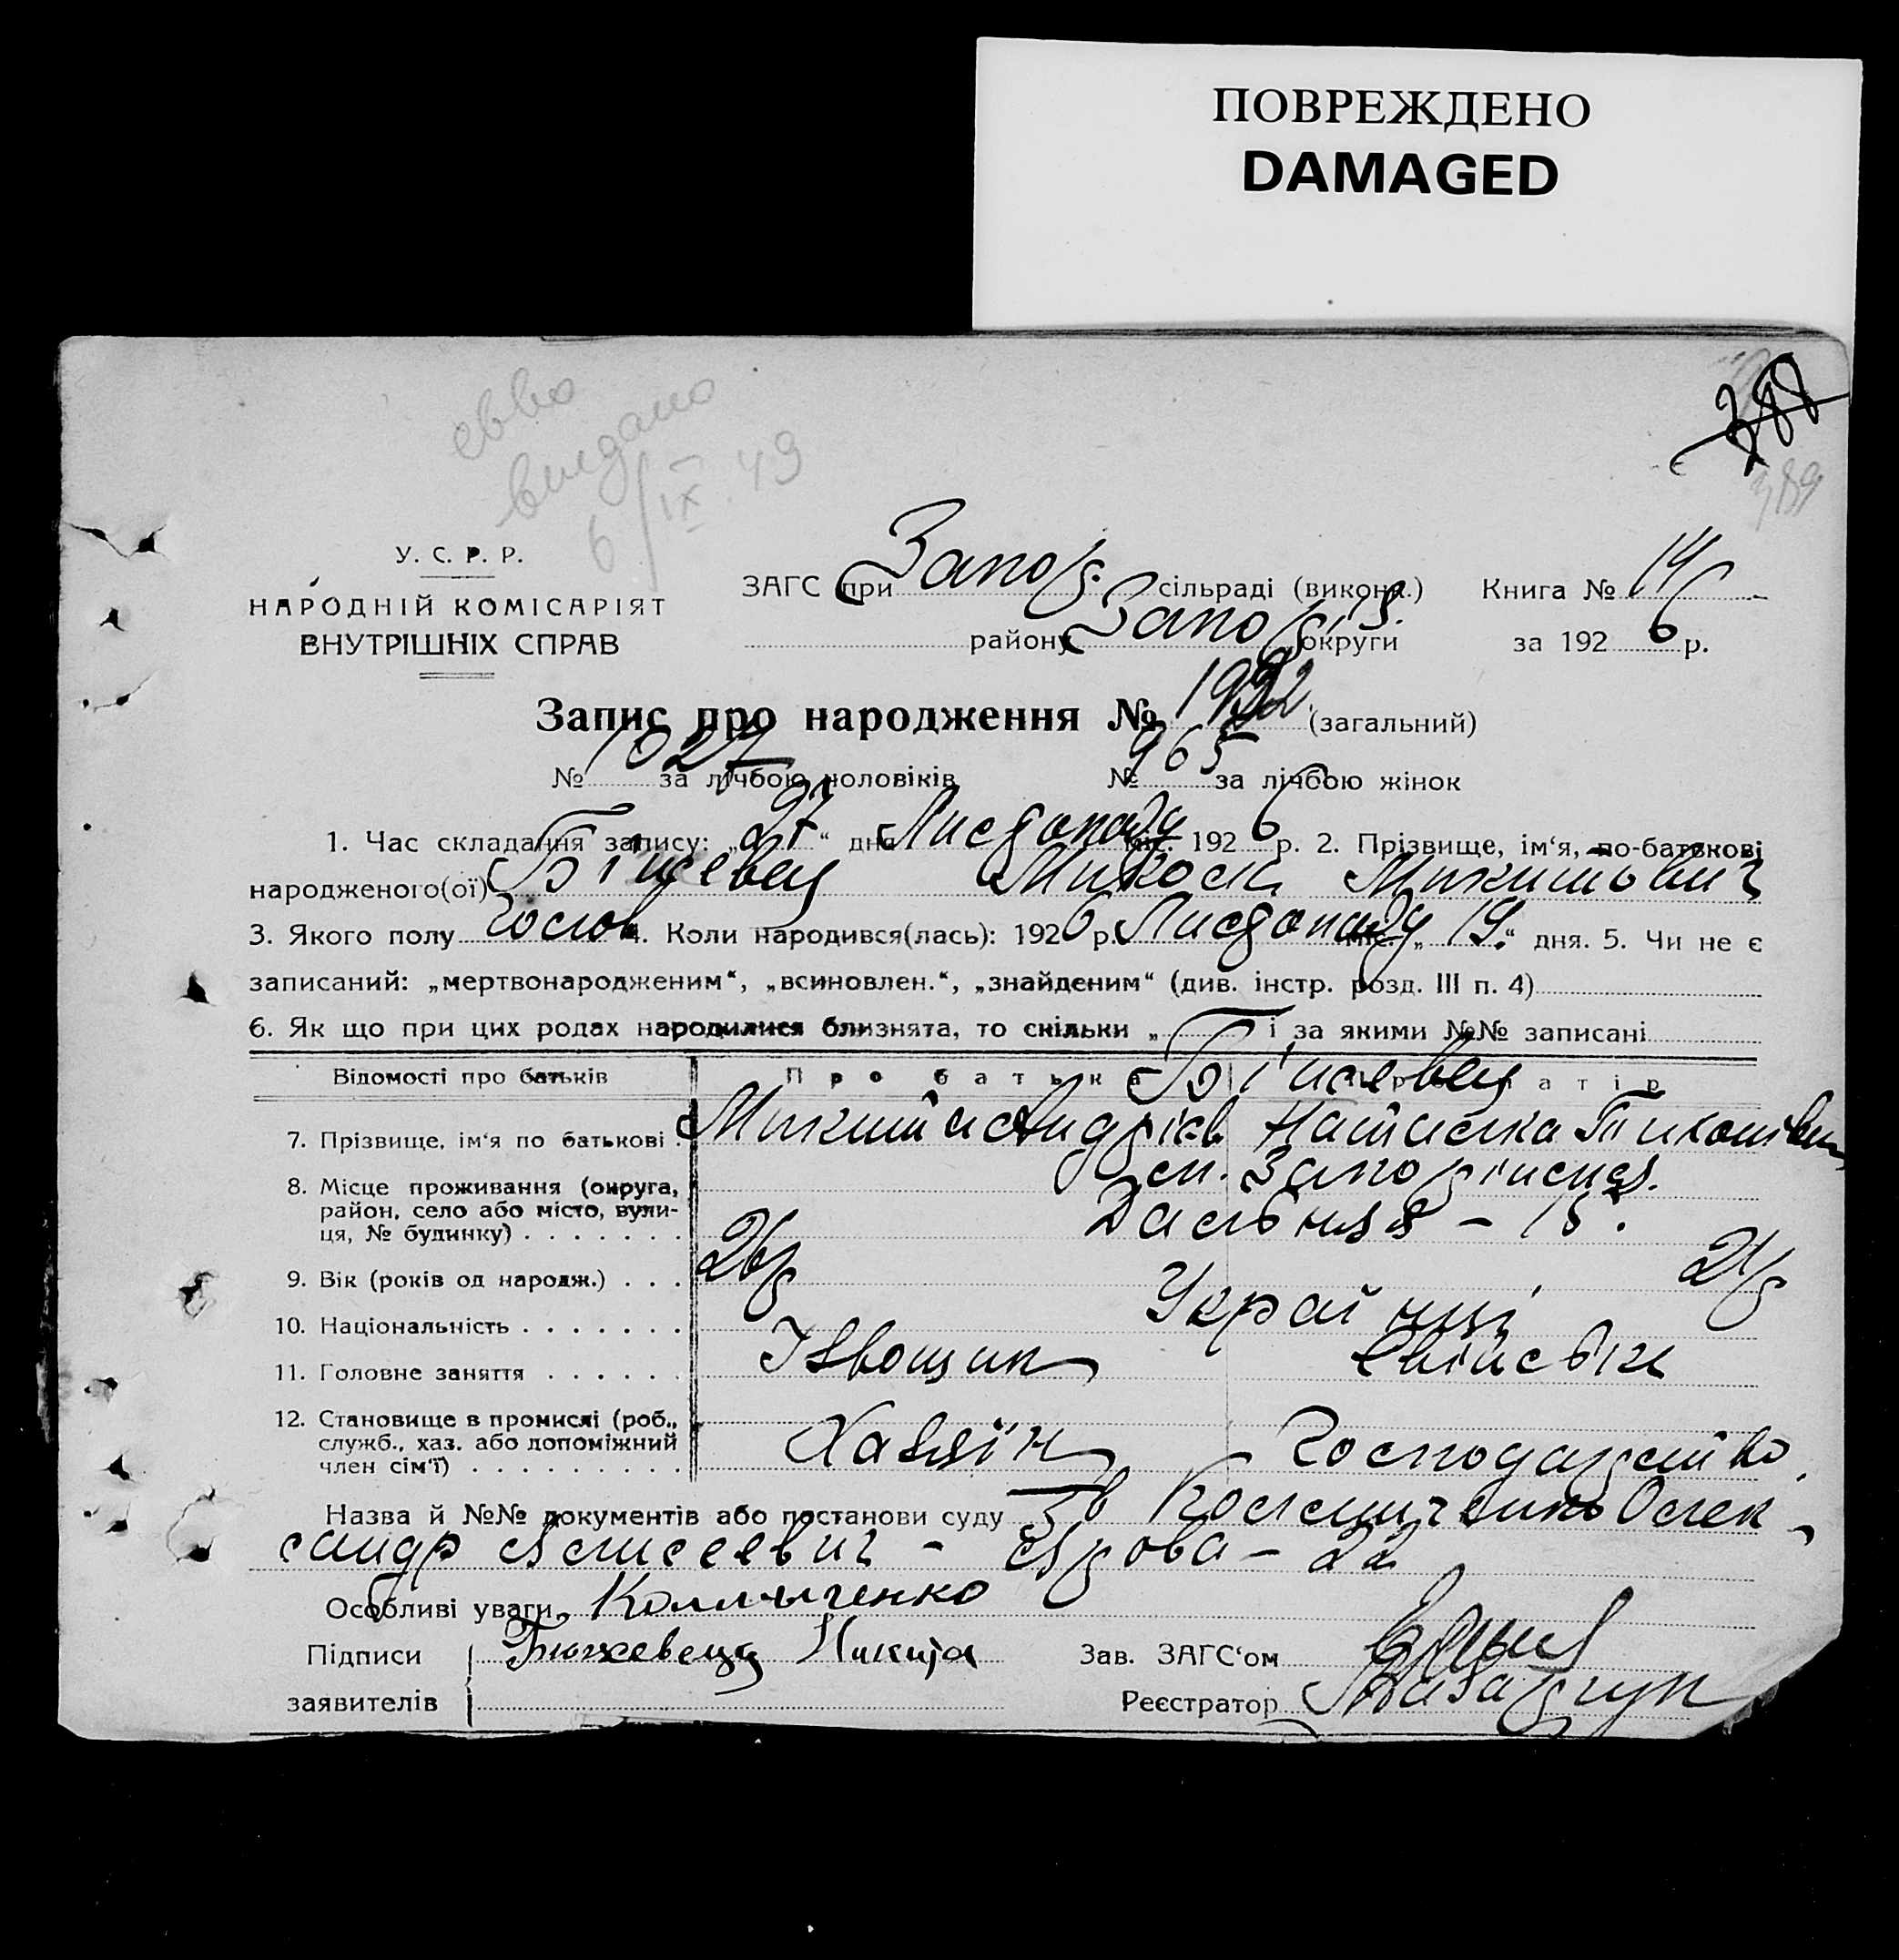 ПОВРЕЖДЕНО
DAMAGED
388
389
видано
6/IX 49
У. С. Р. Р.
НАРОДНІЙ КОМІСАРІЯТ
ВНУТРІШНІХ СПРАВ
ЗАГС при Запор. сільраді (викона.) Книга № 14
району Запоріз. округи за 1926 р.
Запис про народження № 1992 (загальний)
№ 1027 за лічбою чоловіків № 965 за лічбою жінок
1. Час складання запису: „27“ дня Листопаду міс. 1926 р. 2. Прізвище, ім‘я, по-батькові
народженого(ої) Біжевец Микола Микитович
3. Якого полу Чолов 4. Коли народився(лась): 1926 р. Листопаду міс. „19.“ дня. 5. Чи не є
записаний: „мертвонародженим“, „всиновлен.“, „знайденим“ (див. інстр. розд. III п. 4)
6. Як що при цих родах народилися близнята, то скільки „ і за якими №№ записані
Відомості про батьків Про батька Про матір
Біжевец
7. Прізвище, ім‘я по батькові . Микита Андрієв Наталка Тихонівна
8. Місце проживання (округа, район, село або місто, вулиця, № будинку) . . . . . . . ст. Запоріжжя.
Дальняя – 15.
9. Вік (років од народж.) . . . 26р 21р
10. Національність . . . . . . . Українці
11. Головне заняття . . . . . . Ізвощик Хатнє
12. Становище в промислі (роб., служб., хаз. або допоміжний член сім‘ї) . . . . . . . . . Хазяїн Господарство
Назва й №№ документів або постанови суду Олек-
сандр Алисеевич – – 22
Особливі уваги Колмыченко
Підписи Бюжевець Никита Зав. ЗАГС‘ом
заявителів Реєстратор